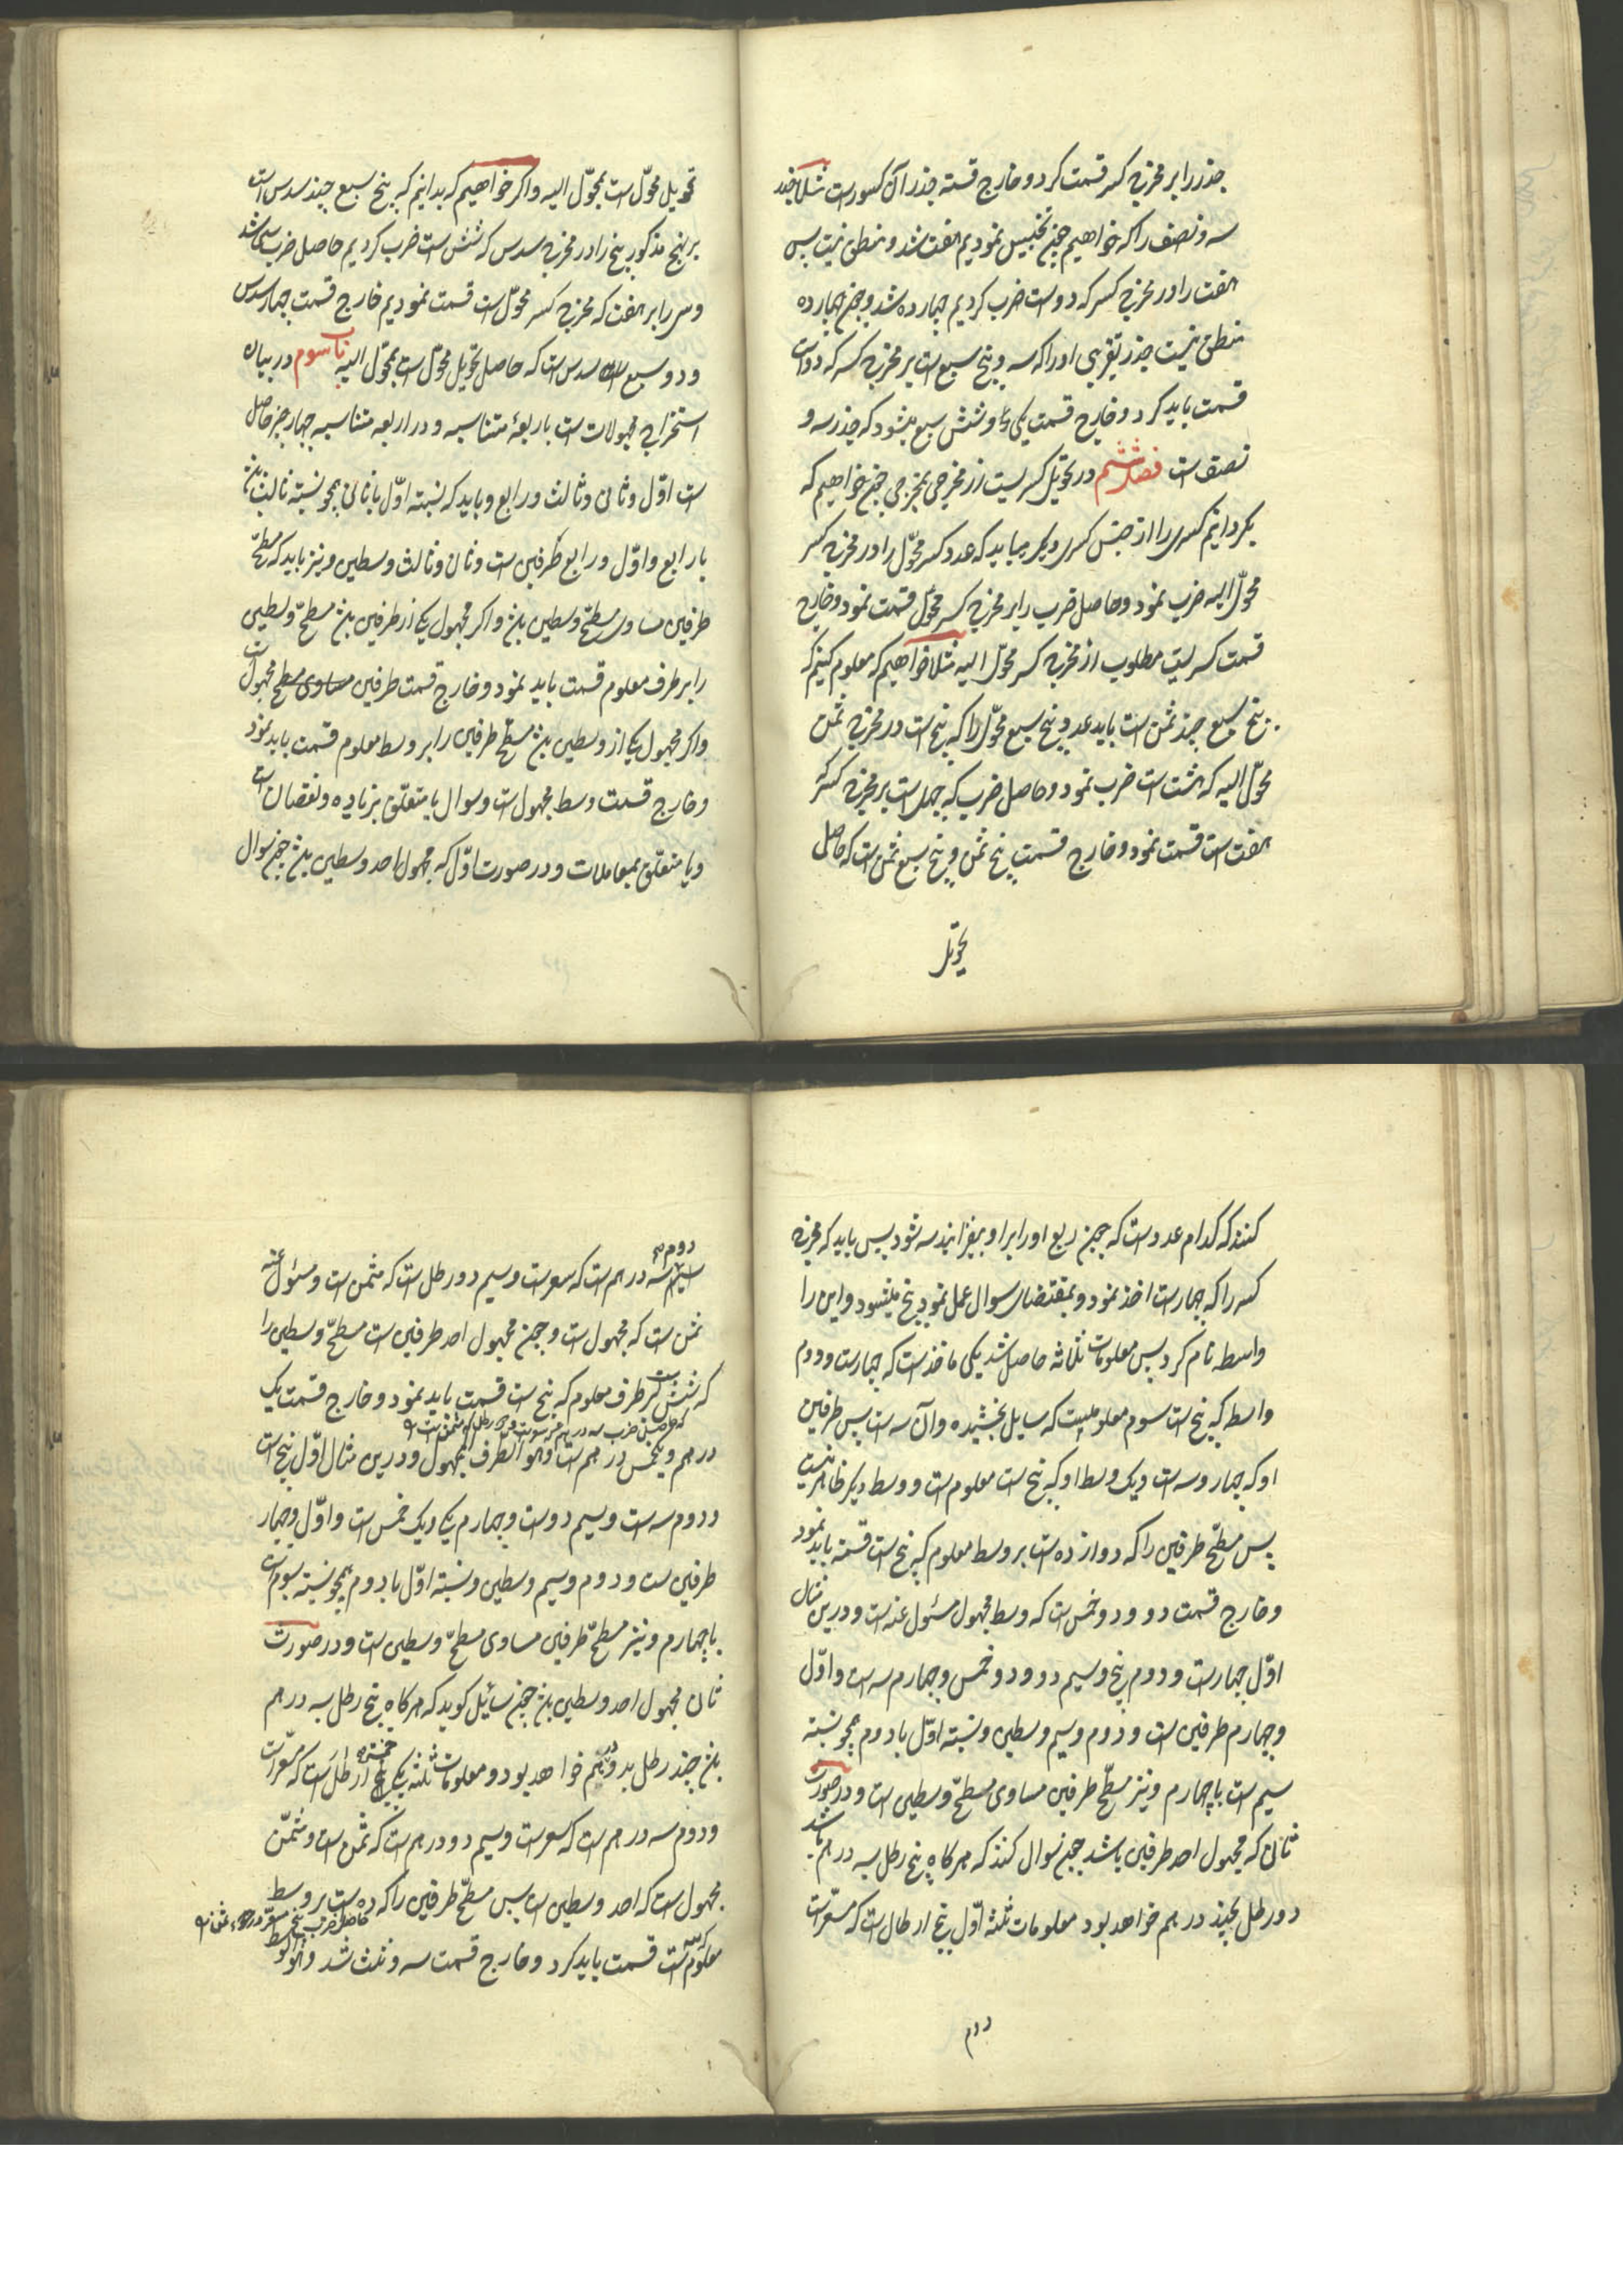 جذر را بر مخرج کسر قسمت کرد و خارج قسمة جذر آن کسورست مثلا جذر
سه و نصف را که خواهیم چون تجنیس نمودیم هفت شد و منطق نیست پس
هفت را در مخرج کسر که دوست ضرب کردیم چهارده شد و چون چهارده
منطق نیست جذر تقریبی او را که سه و پنج سبع است بر مخرج کسر که دواست
قسمت باید کرد و خارج قسمت یکی و شش سبع میشود که جذر سه و
نصف است فصل ششم در تحویل کسریست از مخرجی بمخرجی چون خواهیم که
بکردانیم کسری را از جنس کسری دیکر میباید که عدد کسر محوّل را در مخرج کسر
محوّل الیه ضرب نمود و حاصل ضرب را بر مخرج کسر محوّل قسمت نمود و خارج
قسمت کسریست مطلوب از مخرج کسر محوّل الیه مثلا خواهیم که معلوم کنیم که
پنج سبع چند ثمن است باید عدد پنج سبع محوّل را که پنج است در مخرج ثمن
محوّل الیه که هشت است ضرب نمود و حاصل ضرب که چهل است بر مخرج کسر که
هفت است قسمت نمود و خارج قسمت پنج ثمن و پنج سبع ثمن است که حاصل
تحویل
تحویل محوّل است بمحوّل الیه و اکر خواهیم که بدانیم که پنج سبع چند سدس است
بر نهج مذکور پنج را در مخرج سدس که شش است ضرب کردیم حاصل ضرب سی شد
و سی را بر هفت که مخرج کسر محوّل است قسمت نمودیم خارج قسمت چهار سدس
و دو سبع سدس است که حاصل تحویل محوّل است بمحوّل الیه باب سوم در بیان
استخراج مجهولات است باربعهٔ متناسبه و در اربعه متناسبه چهار جز حاصل
است اوّل و ثانی و ثالث و رابع و باید که نسبته اوّل با ثانی همچو نسبته ثالث باشد
با رابع و اوّل و رابع طرفین است و ثانی و ثالث وسطین و نیز باید که مسطّح
طرفین مساوی مسطّح وسطین باشد و اکر مجهول یکی از طرفین باشد مسطّح وسطین
را بر طرف معلوم قسمت باید نمود و خارج قسمت طرفین مساوی مسطح مجهول است
و اکر مجهول یکی از وسطین باشد مسطّح طرفین را بر وسط معلوم قسمت باید نمود
و خارج قسمت وسط مجهول است و سوال یا متعلّق بزیاده و نقصان است
و یا متعلّق بمعاملات و در صورت اوّل که مجهول احد وسطین باشد چون سوال
کنند که کدام عددست که چون ربع او را بر او بیفزایند سه شود پس باید که مخرج
کسر را که چهارست اخذ نمود و بمقتضای سوال عمل نمود پنج میشود و این را
واسطه نام کرد پس معلومات ثلاثه حاصل شد یکی ماخذست که چهارست و دوم
واسط که پنج است سوم معلومیست که سایل بخشیده و آن سه است پس طرفین
او که چهار و سه است و یک وسط او که پنج است معلوم است و وسط دیکر ظاهر نیست
پس مسطّح طرفین را که دوازده است بر وسط معلوم که پنج است قسمة باید نمود
و خارج قسمت دو و دو خمس است که وسط مجهول مسئول عنه است و درین مثال
اوّل چهارست و دوم پنج و سیم دو و دو خمس و چهارم سه است و اوّل
و چهارم طرفین است و دوم و سیم وسطین و نسبته اوّل با دوم همچو نسبته
سیم است با چهارم و نیز مسطّح طرفین مساوی مسطّح وسطین است و در صورت
ثانی که مجهول احد طرفین باشد چون سوال کنند که هر کاه پنج رطل بسه درهم باشد
دو رطل بچند درهم خواهد بود معلومات ثلثه اوّل پنج ارطال است که مسعّر است
دوم
دوم سه درهم است که سعرست و سیم دو رطل است که مثمن است و مسئول عنه
ثمن است که مجهول است و چون مجهول احد طرفین است مسطّح وسطین را
که شش است بر طرف معلوم که پنج است قسمت باید نمود و خارج قسمت یک
که حاصل ضرب سه درهم سعرست در دو رطل که مثمن است
درهم و یکخمس درهم است و هو الطرف المجهول و درین مثال اوّل پنج است
و دوم سه است و سیم دوست و چهارم یکی و یک خمس است و اوّل و چهار
طرفین است و دوم و سیم وسطین و نسبته اوّل با دوم همچو نسبته سوم است
با چهارم و نیز مسطّح طرفین مساوی مسطّح وسطین است و در صورت
ثانی مجهول احد وسطین باشد چون سائیل کوید که هر کاه پنج رطل بسه درهم
باشد چند رطل بدو درهم خواهد بود و معلومات ثلثه یکی پنج ارطل است که مسعّر است
و دوم سه درهم است که سعرست و سیم دو درهم است که ثمن است و مثمّن
مجهول است که احد وسطین است پس مسطّح طرفین را که ده است بر وسط
حاصل ضرب پنج مسعّر در
معلوم که سه است قسمت باید کرد و خارج قسمت سه و ثلث شد و هو الوسط